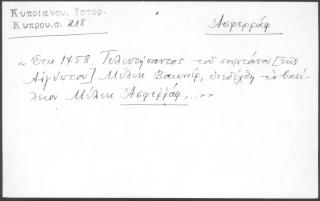 Κυπριανου, Ιστορ.
Κυπρου.σ. 218
Ἀσφερράφ
„ Ἔτει 1458. Τελευτήσαντος τοῦ σουλτάνου [τῆς
Αἰγύπτου] Μέλεκ διεδέχθη τὸ βασί-
λειον Μέλεκ Ἀσφερράφ...»